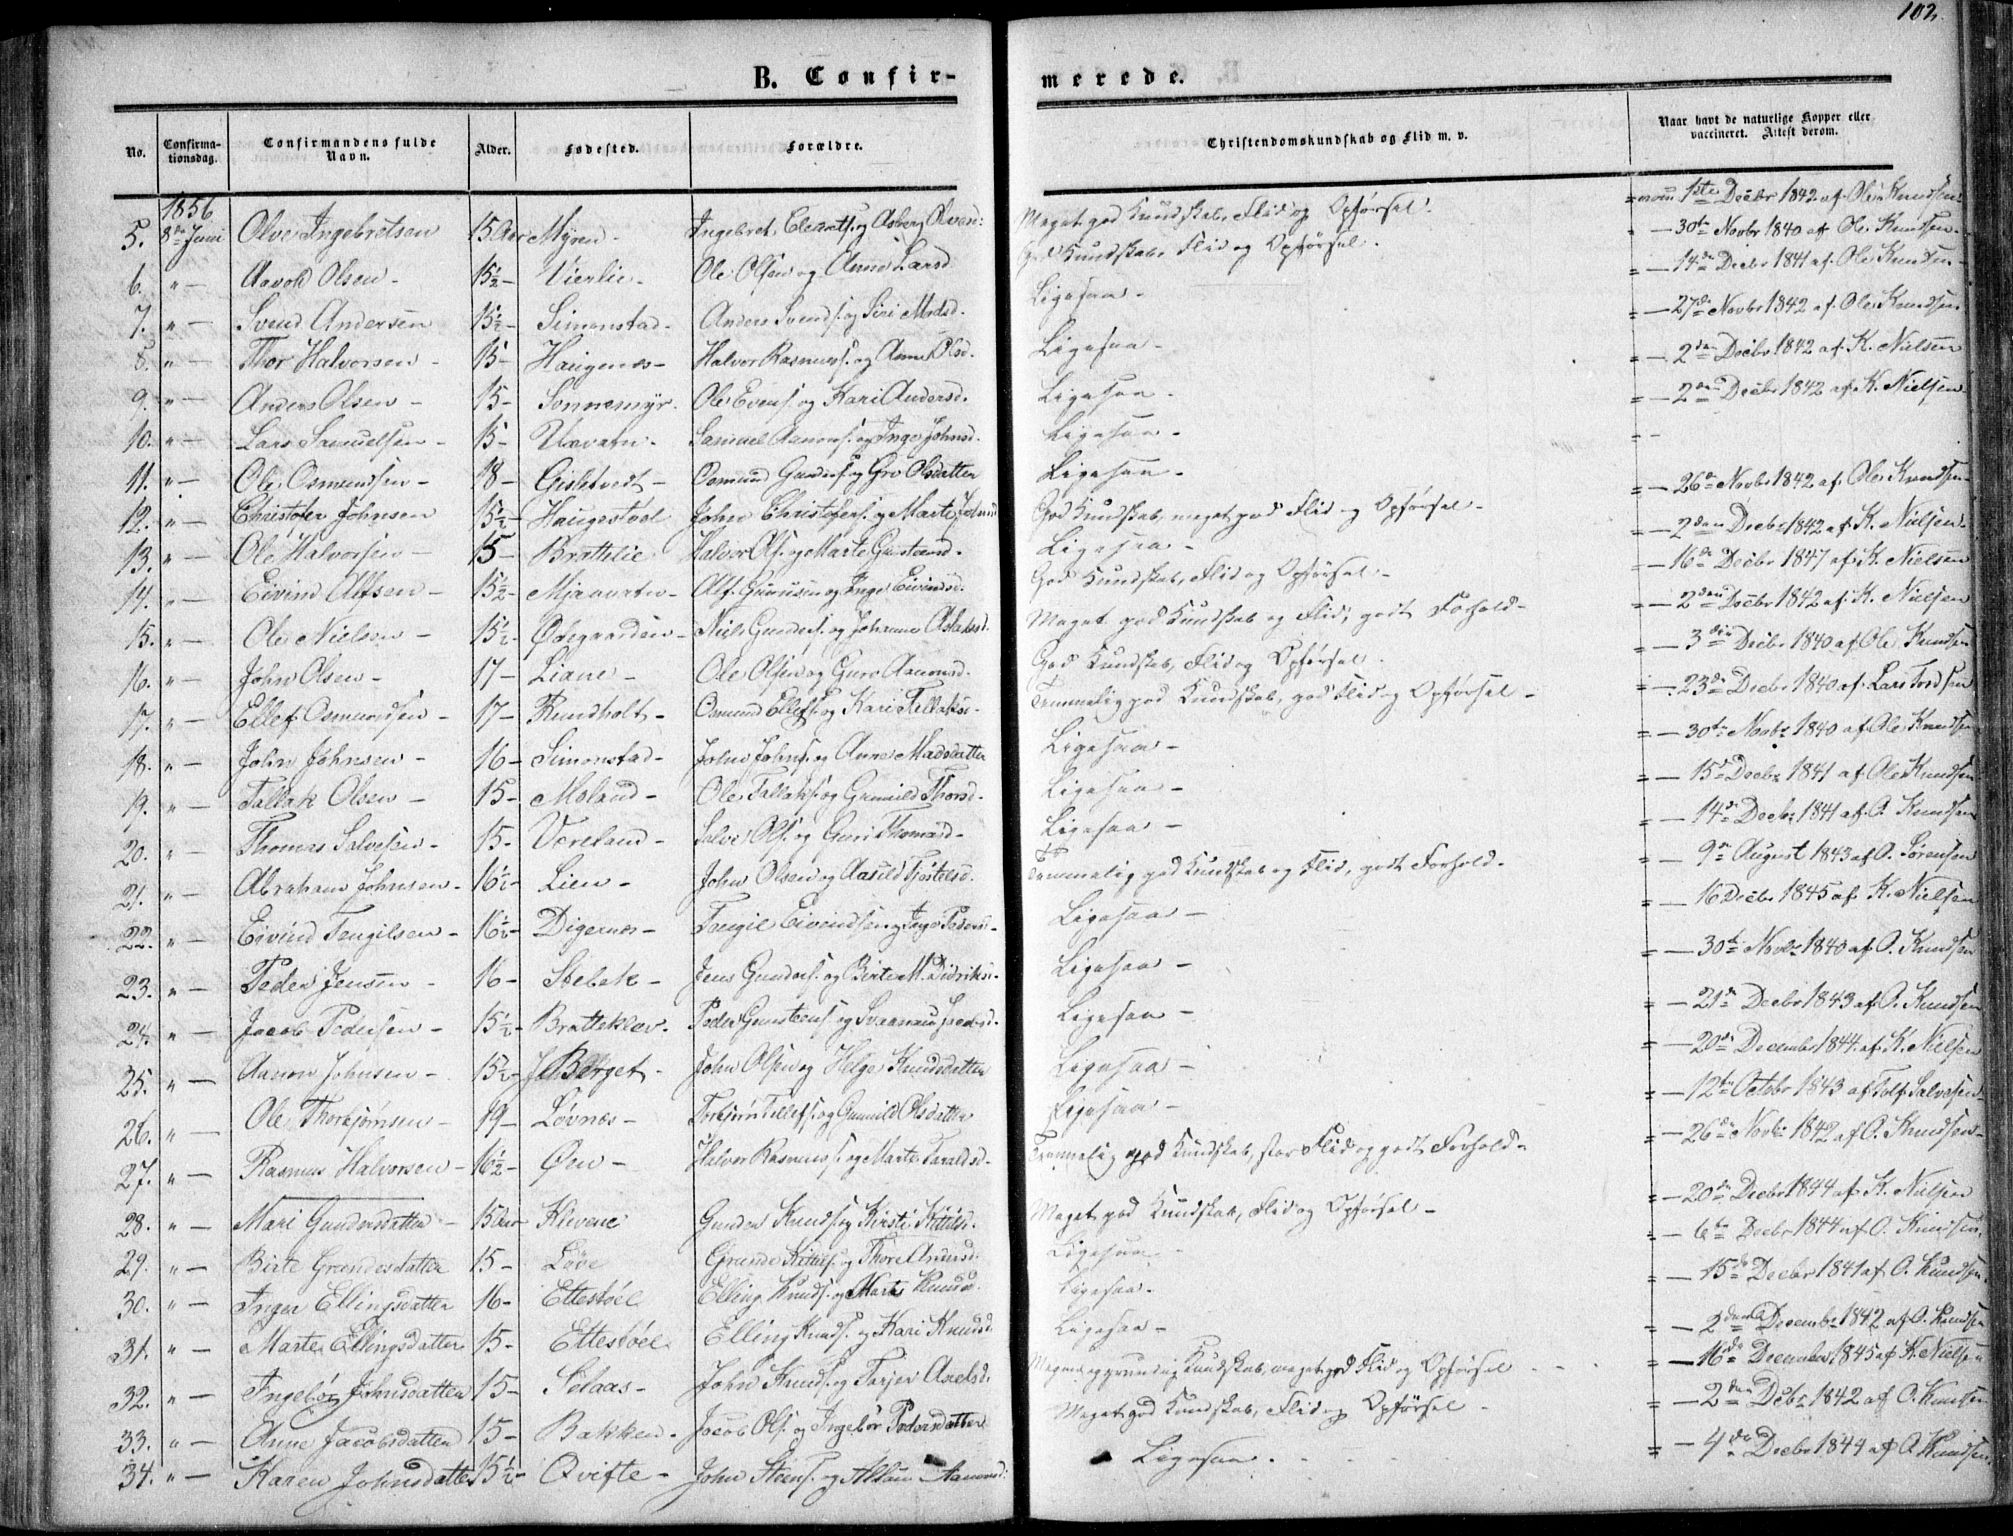 102.
B. Confir-
merede.
No.
Confirma-
tionsdag.
Confirmandens fulde
Navn.
Alder.
Fødested.
Forældre.
Christendomskundskab og Flid m. v.
Naar havt de naturlige Kopper eller
vaccineret. Attest derom.
1856
5. 8de Juni Olve Ingebretsen 15 Aar Myren - Ingebret og Asberg Meget god Kundskab, Flid og Opførsel. 1ste Decbr 1842 af Ole Knudsen
6. " — Aavold Olsen - 15½ - Vierlie - Ole Olsen og Anne Larsd God Kundskab, Flid og Opførsel. — 30te Novbr 1840 af Ole Knudsen
7. " — Svend Andersen 15½ - Simonstad - Anders Svends. og Siri Madsd. Ligesaa - — 14de Decbr 1841 af Ole Knudsen
8. " — Thor Halvorsen - 15 - Haugenes - Halvor Rasmuss. og Anne Olsd. Ligesaa - — 27de Novbr 1842 af Ole Knudsen
9. " — Anders Olsen - 15 - Sonnemyr. Ole Evens. og Kari Andersd. Ligesaa - — 2den Decbr 1842 af K. Nielsen
10. " — Lars Samuelsen - 15 - Uævatn - Samuel Aanons. og Inge Johnsd. Ligesaa - — 2den Decbr 1842 af K. Nielsen
11. " — Ole Osmundsen - 18 - Gislevedt - Osmund Gunders. og Gro Olsdatter Ligesaa -
12. " — Christofer Johnsen 15½ - Haugestøel John Christofers. og Marte God Kundskab, meget god Flid og Opførsel - — 26de Novbr 1842 af Ole Knudsen
13. " — Ole Halvorsen - 15 - Brattelie Halvor Ols. og Marte Gunsteensd. Ligesaa - — 2den Decbr 1842 af K. Nielsen
14. " — Eivind Alfsen - 15½ - Mjaavatn - Alf og Inge Eivindsd. God Kundskab, Flid og Opførsel - — 16de Decbr 1847 af K. Nielsen
15. " — Ole Nielsen - 15½ - Ødegaarden - Niels Gunders. og Johanne Aslaksd. Meget god Kundskab og Flid, godt Forhold - — 2den Decbr 1842 af K. Nielsen
16. " — John Olsen - 17 - Liane - Ole Olsen og Guro Aanonsd. God Kundskab, Flid og Opførsel. — 3die Decbr 1840 af Ole Knudsen
17. " — Ellef Osmundsen - 17 - Rundholt - Osmund Ellefs. og Kari Tellaksd. Temmelig god Kundskab, god Flid og Opførsel - — 23de Decbr 1840 af Lars Tordsen
18. " — John Johnsen - 16 - Simonstad - John Johns. og Anne Madsdatter Ligesaa - — 30te Novbr 1840 af Ole Knudsen
19. " — Tallak Olsen - 15 - Moland - Ole Tallaks. og Gunnild Thorsd. Ligesaa - — 15de Decbr 1841 af Ole Knudsen
20. " — Thomas Salvesen - 15 - Voreland - Salve Ols. og Guri Thomasd - Ligesaa - — 14de Decbr 1841 af O. Knudsen
21. " — Abraham Johnsen - 16½ - Lien - John Olsen og Aasild Tjøstelsd. Temmelig god Kundskab og Flid, godt Forhold. — 9de August 1843 af O. Sørensen
22. " — Eivind Tengilsen - 16½ - Digernes - Tengil Eivindsen og Inge Pedersd - Ligesaa - — 16 Decbr 1845 af K. Nielsen
23. " — Peder Jensen - 16 - Stebek - Jens Gunders. og Birte M. Didriksd. Ligesaa - — 30te Novbr 1840 af O. Knudsen
24. " — Jacob Pedersen - 15½ - Bratteklev - Peder Gunsteens. og Svaanau Jacobsd. Ligesaa - — 21de Decbr 1843 af O. Knudsen
25. " — Aanon Johnsen - 15½ - Berget - John Olsen og Helge Knudsdatter Ligesaa - — 20de December 1844 af K. Nielsen
26. " — Ole Thorbjørnsen - 19 - Løvnes - Torbjørn Tellefs. og Gunnild Olsdatter Ligesaa - — 12te Octobr 1843 af Salvesen
27. " — Rasmus Halvorsen - 16½ - Øen - Halvor Rasmuss. og Marte Taraldsd - Temmelig god Kundskab, stor Flid og godt Forhold - — 26de Novbr 1842 af O. Knudsen
28. " — Mari Gundersdatter - 15 Aar Klevene Gunder Knuds. og Kirsti Kittilsd. Meget god Kundskab, Flid og Opførsel - — 20de Decbr 1844 af K. Nielsen
29. " — Birte Grundesdatter 15 - Løve Grunde Kittils. og Thore Ligesaa - — 6te Decbr 1844 af O. Knudsen
30. " — Inger Ellingsdatter 16 - Ettestøel Elling Knuds. og Marte Knudsd. Ligesaa - — 15de Decbr 1841 af O. Knudsen
31. " — Marte Ellingsdatter 15 - Ettestøel Elling Knuds. og Kari Knudsd. Ligesaa - — 2den Decembr 1842 af O. Knudsen
32. " — Ingebør Johnsdatter 15 - Selaas - John Knuds. og Tarjer Axelsd. Kundskab, meget god Flid og Opførsel — 16de December 1845 af K. Nielsen
33. " — Anne Jacobsdatter 15 - Bakken - Jacob Ols. og Ingebør Pedersdatter Meget god Kundskab, Flid og Opførsel - — 2den Debr 1842 af O. Knudsen
34. " — Karen Johnsdatter 15½ - Qvifte - John Steens. og Aanonsd. Ligesaa. — 4de Decbr 1844 af O. Knudsen